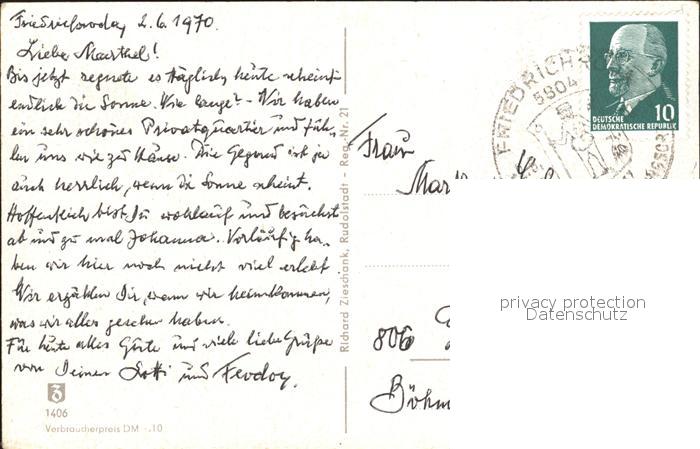 Friedrichroda, 2.6.1970.
Liebe Marthel!
Bis jetzt regnete es täglich, heute scheint
endlich die Sonne. Wie lange? - Wir haben
ein sehr schönes Privatquartier und füh-
len uns wie zu Hause. Die Gegend ist ja
auch herrlich, wenn die Sonne scheint.
Hoffentlich bist Du wohlauf und besuchst
ab und zu mal Johanna. Vorläufig ha-
ben wir hier noch nicht viel erlebt.
Wir erzählen Dir, wenn wir heimkommen,
was wir alles gesehen haben.
Für heute alles Gute und viele liebe Grüße
von Deinen Lotti und
1406
Verbraucherpreis DM -.10
Richard Zieschank, Rudolstadt - Reg.-Nr. 21
FRIEDRICHRO
5804
10
DEUTSCHE
DEMOKRATISCHE REPUBLIK
Frau
Mar
806
Böhm
privacy protection
Datenschutz